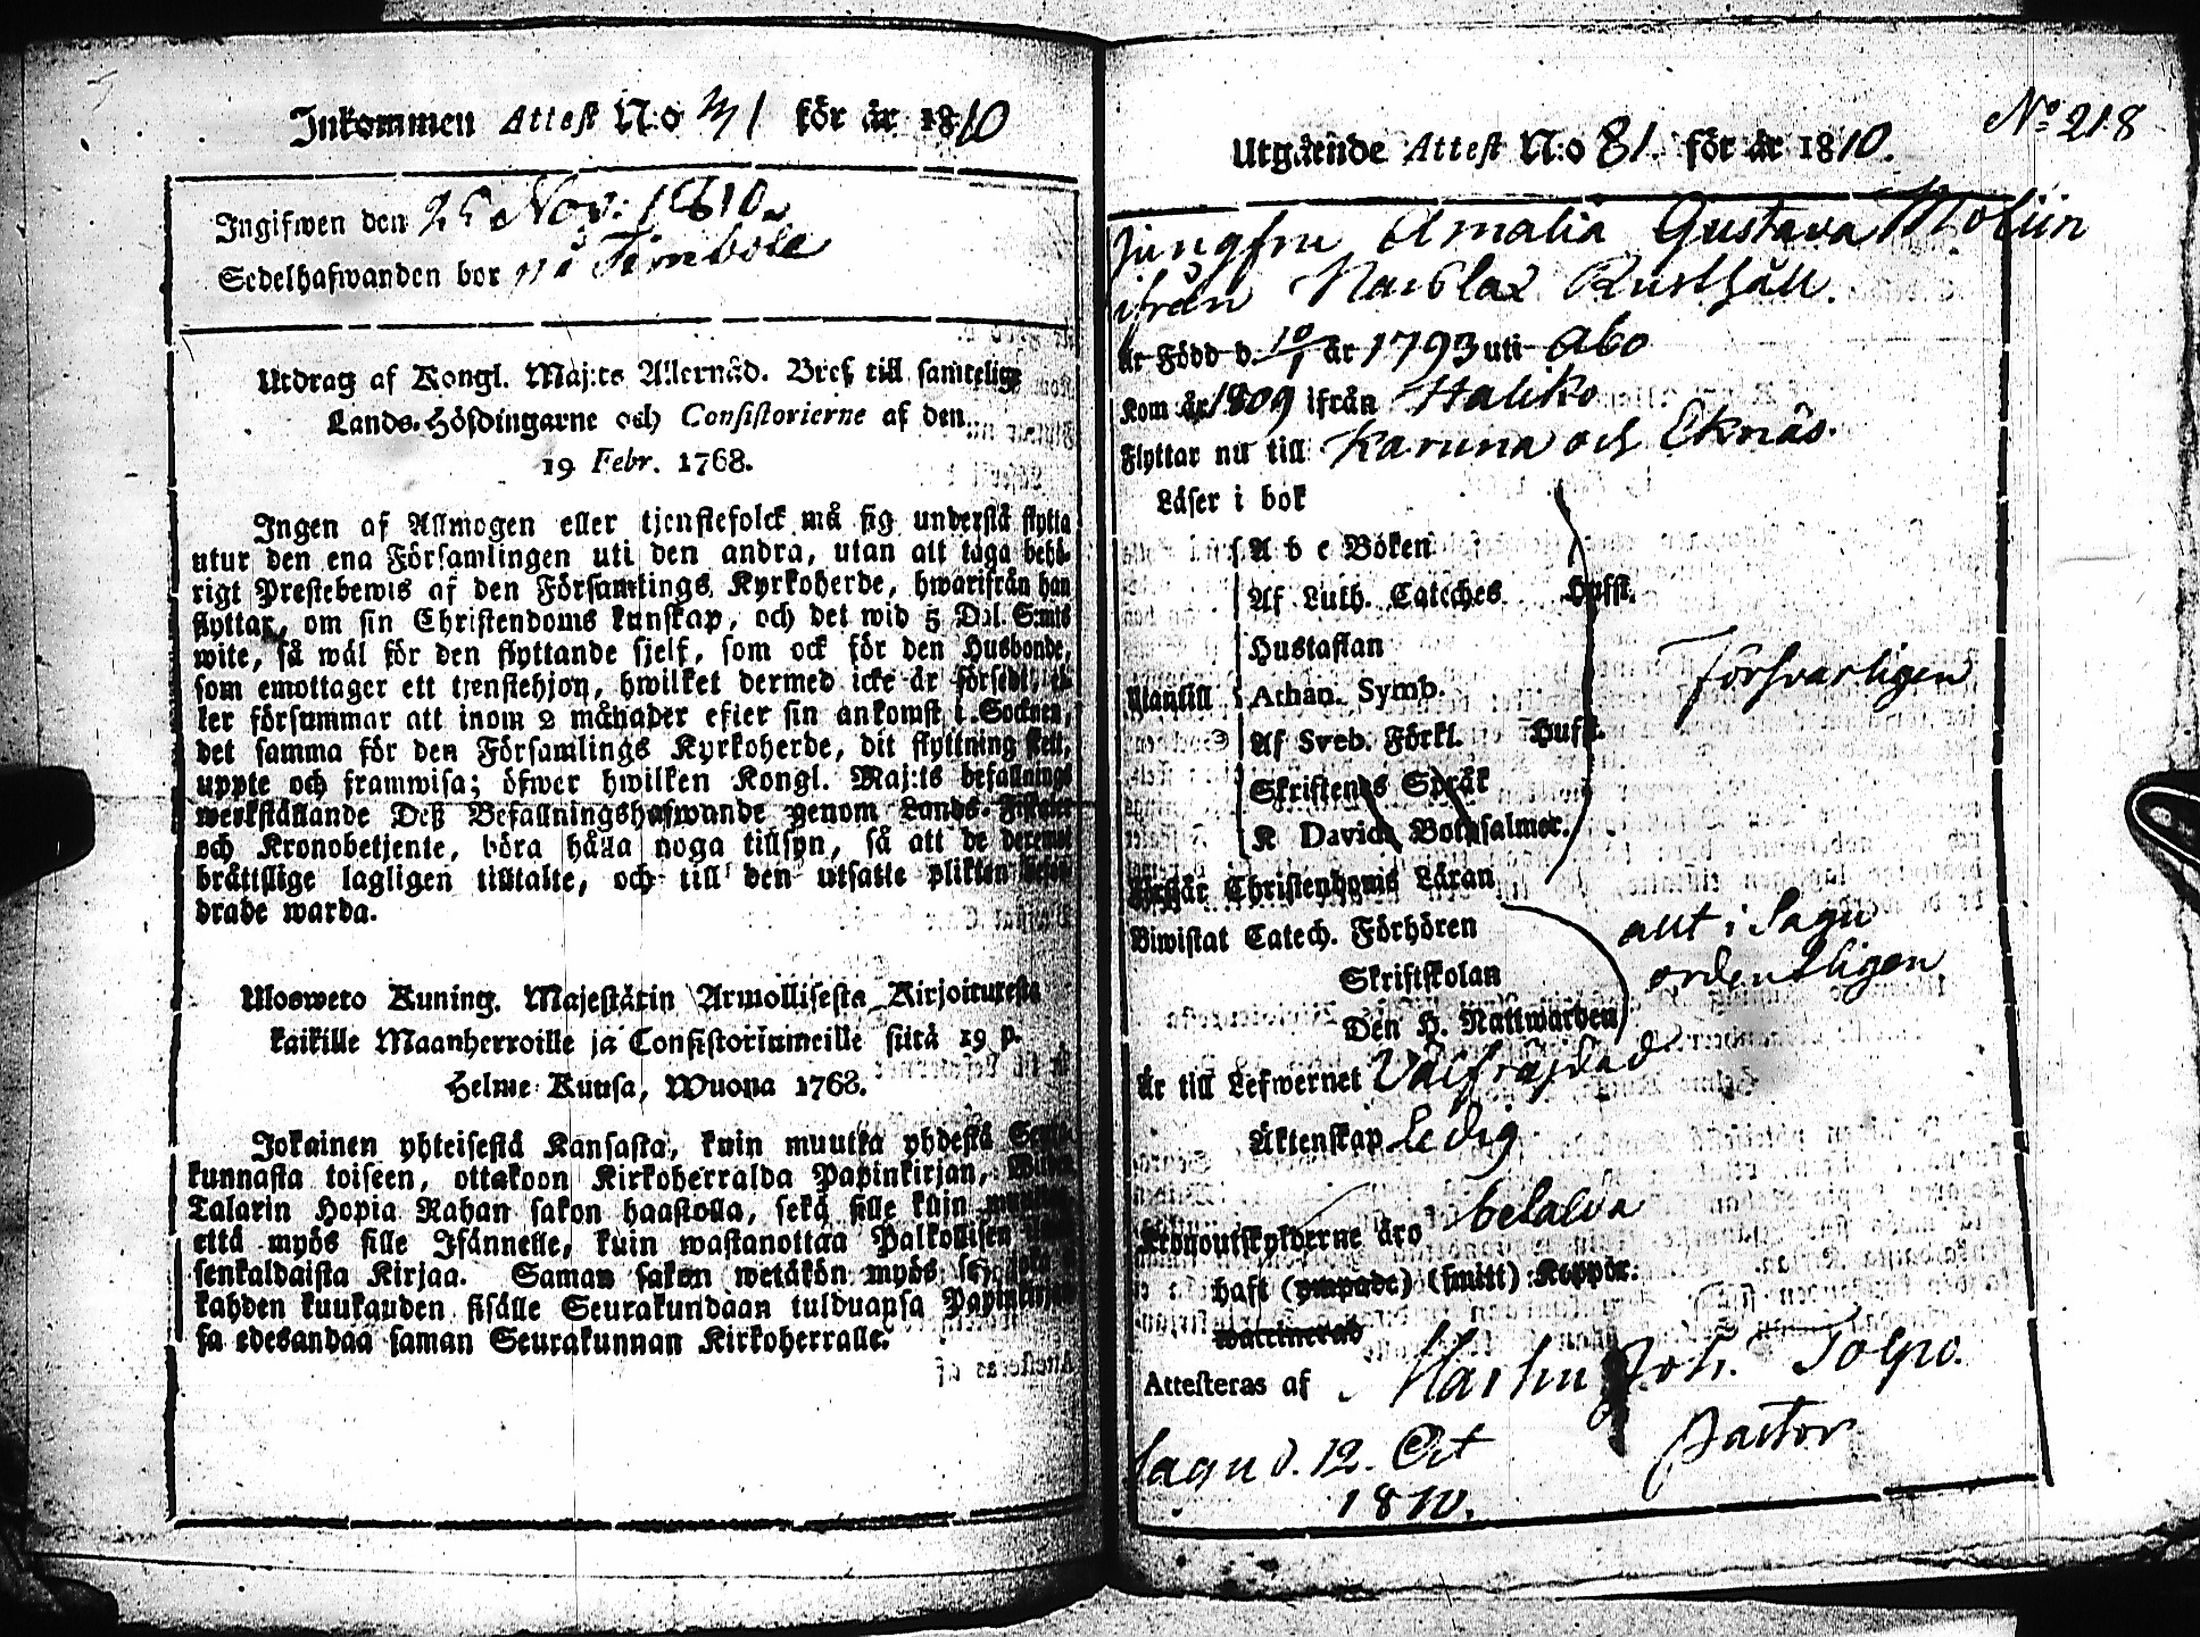 Inkommen Attest N:o 31 för år 1810
Ingifwen den 25 Nov: 1810.
Sedelhafwanden bor på Timbole
Utdrag af Kongl. Maj:ts Allernåd. Bref till samtelige
Lands-Höfdingarne och Consistorierne af den
19 Febr. 1768.
Ingen af Allmogen eller tjenstefolck må sig understå flytta
utur den ena Församlingen uti den andra, utan att taga behö-
rigt Prestebewis af den Församlings Kyrkoherde, hwarifrån han
flyttar, om sin Christendoms kunskap, och det wid 5 Dal. S:mts
wite, så wäl för den flyttande sjelf, som ock för den Husbonde,
som emottager ett tjenstehjon, hwilket dermed icke är försedt, el-
ler försummar att inom 2 månader efter sin ankomst i Socknen,
det samma för den Församlings Kyrkoherde, dit flyttning skett,
uppte och framwisa; öfwer hwilken Kongl. Maj:ts befallnings
werkställande Deß Befallningshafwande genom Lands-Fiskaler
och Kronobetjente, böra hålla noga tillsyn, så att de deremot
bråttslige lagligen tilltalte, och till den utsatte plikten befor-
drade warda.
Ulosweto Kuning. Majestätin Armollisesta Kirjoituxesta
kaikille Maanherroille ja Consistoriumeille siitä 19 p.
Helme-Kuusa, Wuona 1768.
Jokainen yhteisestä Kansasta, kuin muutta yhdestä Seura-
kunnasta toiseen, ottakoon Kirkoherralda Papinkirjan, Wiiden
Talarin Hopia Rahan sakon haastolla, sekä sille kuin muutta
että myös sille Isännelle, kuin wastanottaa Palkollisen ilman
senkaldaista Kirjaa. Saman sakon wetäkön myös se, joka ei
kahden kuukauden sisälle Seurakundaan tulduansa Papinkirjan-
sa edesandaa saman Seurakunnan Kirkoherralle.
N:o 218
Utgående Attest N:o 81. för år 1810.
Jungfru Amalia Gustava Moliin
ifrån Narblax Rusthåll.
Är Född d. 10/1 år 1793 uti Abo
Kom år 1809 ifrån Haliko
Flyttar nu till Karuna och Eknäs.
Läser i bok
A b c Boken
Af Luth. Cateches Hufst.
Hustaflan
Försvarligen
Utantill Athan. Symb.
Af Sveb. Förkl. Hufst.
Skriftenes Språk
K Davids Botpsalmer.
Förstår Christendoms Läran
Biwistat Catech. Förhören
allt i Sagu
Skriftskolan
ordentligen
Den H. Nattwarden
Är till Lefwernet Välfräjdad
Äktenskap Ledig
Kronoutskylderne äro betalda
haft (ympade) (smitt) Koppor.
waccinerad
Attesteras af Martin Joh. Tolpo.
Pastor
Sagu d. 12. Oct
1810.